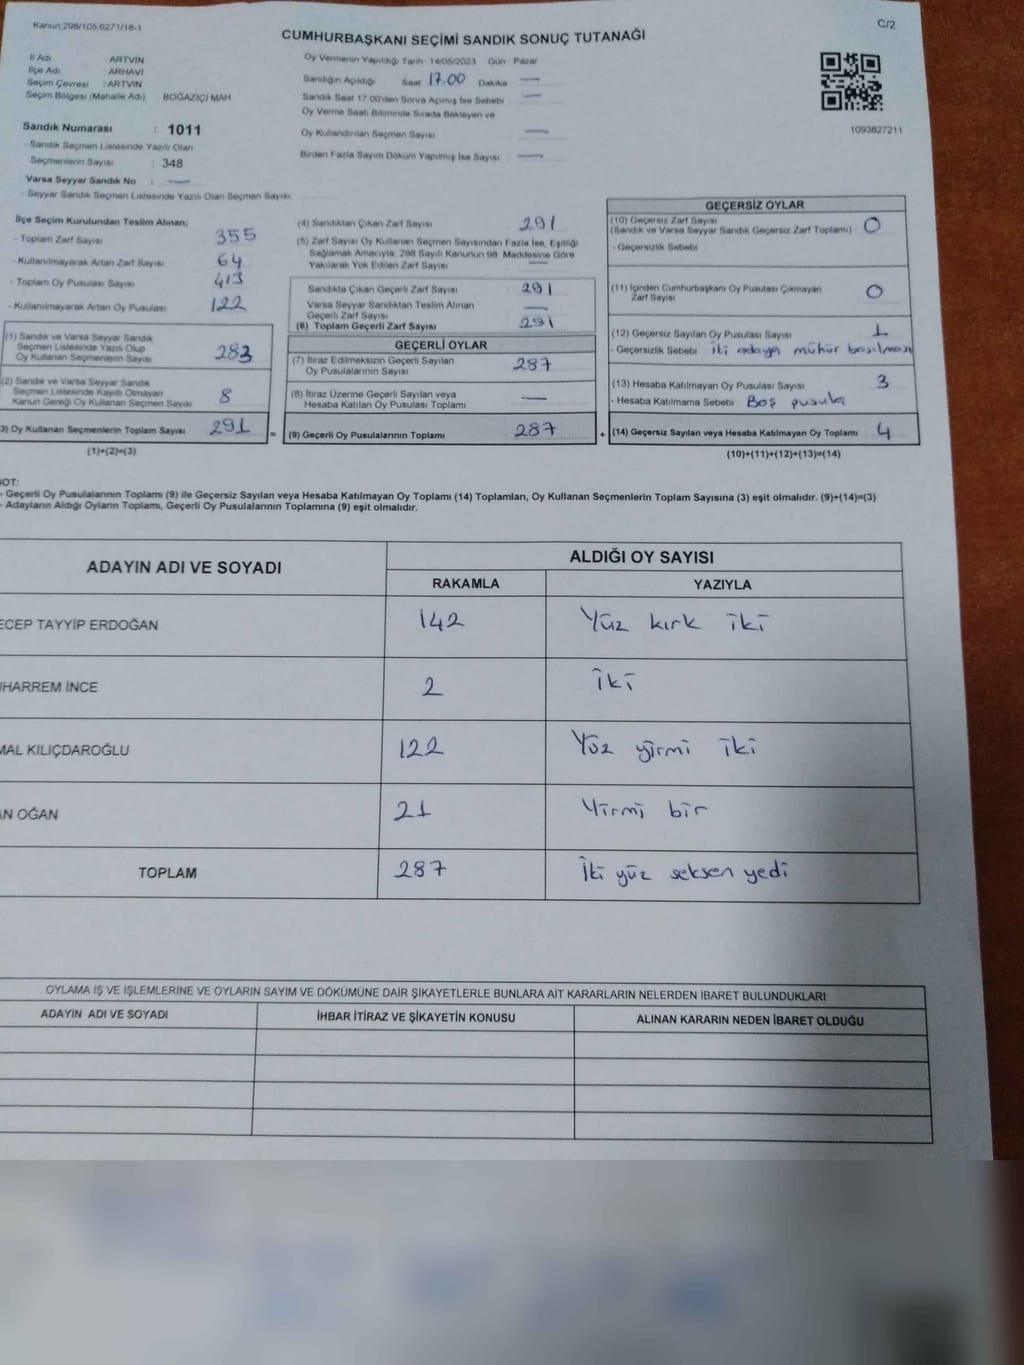 Kanun:298/105.6271/18-1
C/2
CUMHURBAŞKANI SEÇİMİ SANDIK SONUÇ TUTANAĞI
İl Adı ARTVİN
İlçe Adı ARHAVİ
Seçim Çevresi : ARTVİN
Seçim Bölgesi (Mahalle Adı) BOĞAZİÇİ MAH
Sandık Numarası : 1011
- Sandık Seçmen Listesinde Yazılı Olan
Seçmenlerin Sayısı : 348
Varsa Seyyar Sandık No : —
- Seyyar Sandık Seçmen Listesinde Yazılı Olan Seçmen Sayısı
Oy Vermenin Yapıldığı Tarih 14/05/2023 Gün Pazar
Sandığın Açıldığı Saat 17.00 Dakika —
Sandık Saat 17.00'den Sonra Açılmış İse Sebebi —
Oy Verme Saati Bitiminde Sırada Bekleyen ve
Oy Kullandırılan Seçmen Sayısı —
Birden Fazla Sayım Döküm Yapılmış İse Sayısı —
1093827211
İlçe Seçim Kurulundan Teslim Alınan;
- Toplam Zarf Sayısı 355
- Kullanılmayarak Artan Zarf Sayısı 64
- Toplam Oy Pusulası Sayısı 413
- Kullanılmayarak Artan Oy Pusulası 122
(1) Sandık ve Varsa Seyyar Sandık
Seçmen Listesinde Yazılı Olup
Oy Kullanan Seçmenlerin Sayısı 283
(2) Sandık ve Varsa Seyyar Sandık
Seçmen Listesinde Kayıtlı Olmayan
Kanun Gereği Oy Kullanan Seçmen Sayısı 8
3) Oy Kullanan Seçmenlerin Toplam Sayısı 291 =
(1)+(2)=(3)
(4) Sandıktan Çıkan Zarf Sayısı 291
(5) Zarf Sayısı Oy Kullanan Seçmen Sayısından Fazla İse, Eşitliği
Sağlamak Amacıyla, 298 Sayılı Kanunun 98. Maddesine Göre
Yakılarak Yok Edilen Zarf Sayısı —
Sandıkta Çıkan Geçerli Zarf Sayısı 291
Varsa Seyyar Sandıktan Teslim Alınan
Geçerli Zarf Sayısı —
(6) Toplam Geçerli Zarf Sayısı 291
GEÇERLİ OYLAR
(7) İtiraz Edilmeksizin Geçerli Sayılan
Oy Pusulalarının Sayısı 287
(8) İtiraz Üzerine Geçerli Sayılan veya
Hesaba Katılan Oy Pusulası Toplamı —
(9) Geçerli Oy Pusulalarının Toplamı 287 +
GEÇERSİZ OYLAR
(10) Geçersiz Zarf Sayısı
(Sandık ve Varsa Seyyar Sandık Geçersiz Zarf Toplamı) 0
- Geçersizlik Sebebi
(11) İçinden Cumhurbaşkanı Oy Pusulası Çıkmayan
Zarf Sayısı 0
(12) Geçersiz Sayılan Oy Pusulası Sayısı 1
- Geçersizlik Sebebi iki adaya mühür basılması
(13) Hesaba Katılmayan Oy Pusulası Sayısı 3
- Hesaba Katılmama Sebebi Boş pusula
(14) Geçersiz Sayılan veya Hesaba Katılmayan Oy Toplamı 4
(10)+(11)+(12)+(13)=(14)
OT:
- Geçerli Oy Pusulalarının Toplamı (9) ile Geçersiz Sayılan veya Hesaba Katılmayan Oy Toplamı (14) Toplamları, Oy Kullanan Seçmenlerin Toplam Sayısına (3) eşit olmalıdır. (9)+(14)=(3)
- Adayların Aldığı Oyların Toplamı, Geçerli Oy Pusulalarının Toplamına (9) eşit olmalıdır.
ADAYIN ADI VE SOYADI ALDIĞI OY SAYISI
RAKAMLA YAZIYLA
ECEP TAYYİP ERDOĞAN 142 Yüz kırk iki
HARREM İNCE 2 İki
MAL KILIÇDAROĞLU 122 Yüz yirmi iki
AN OĞAN 21 Yirmi bir
TOPLAM 287 İki yüz seksen yedi
OYLAMA İŞ VE İŞLEMLERİNE VE OYLARIN SAYIM VE DÖKÜMÜNE DAİR ŞİKAYETLERLE BUNLARA AİT KARARLARIN NELERDEN İBARET BULUNDUKLARI
ADAYIN ADI VE SOYADI İHBAR İTİRAZ VE ŞİKAYETİN KONUSU ALINAN KARARIN NEDEN İBARET OLDUĞU